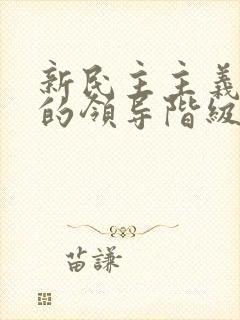 新民主主義
的領导階級
苗謙